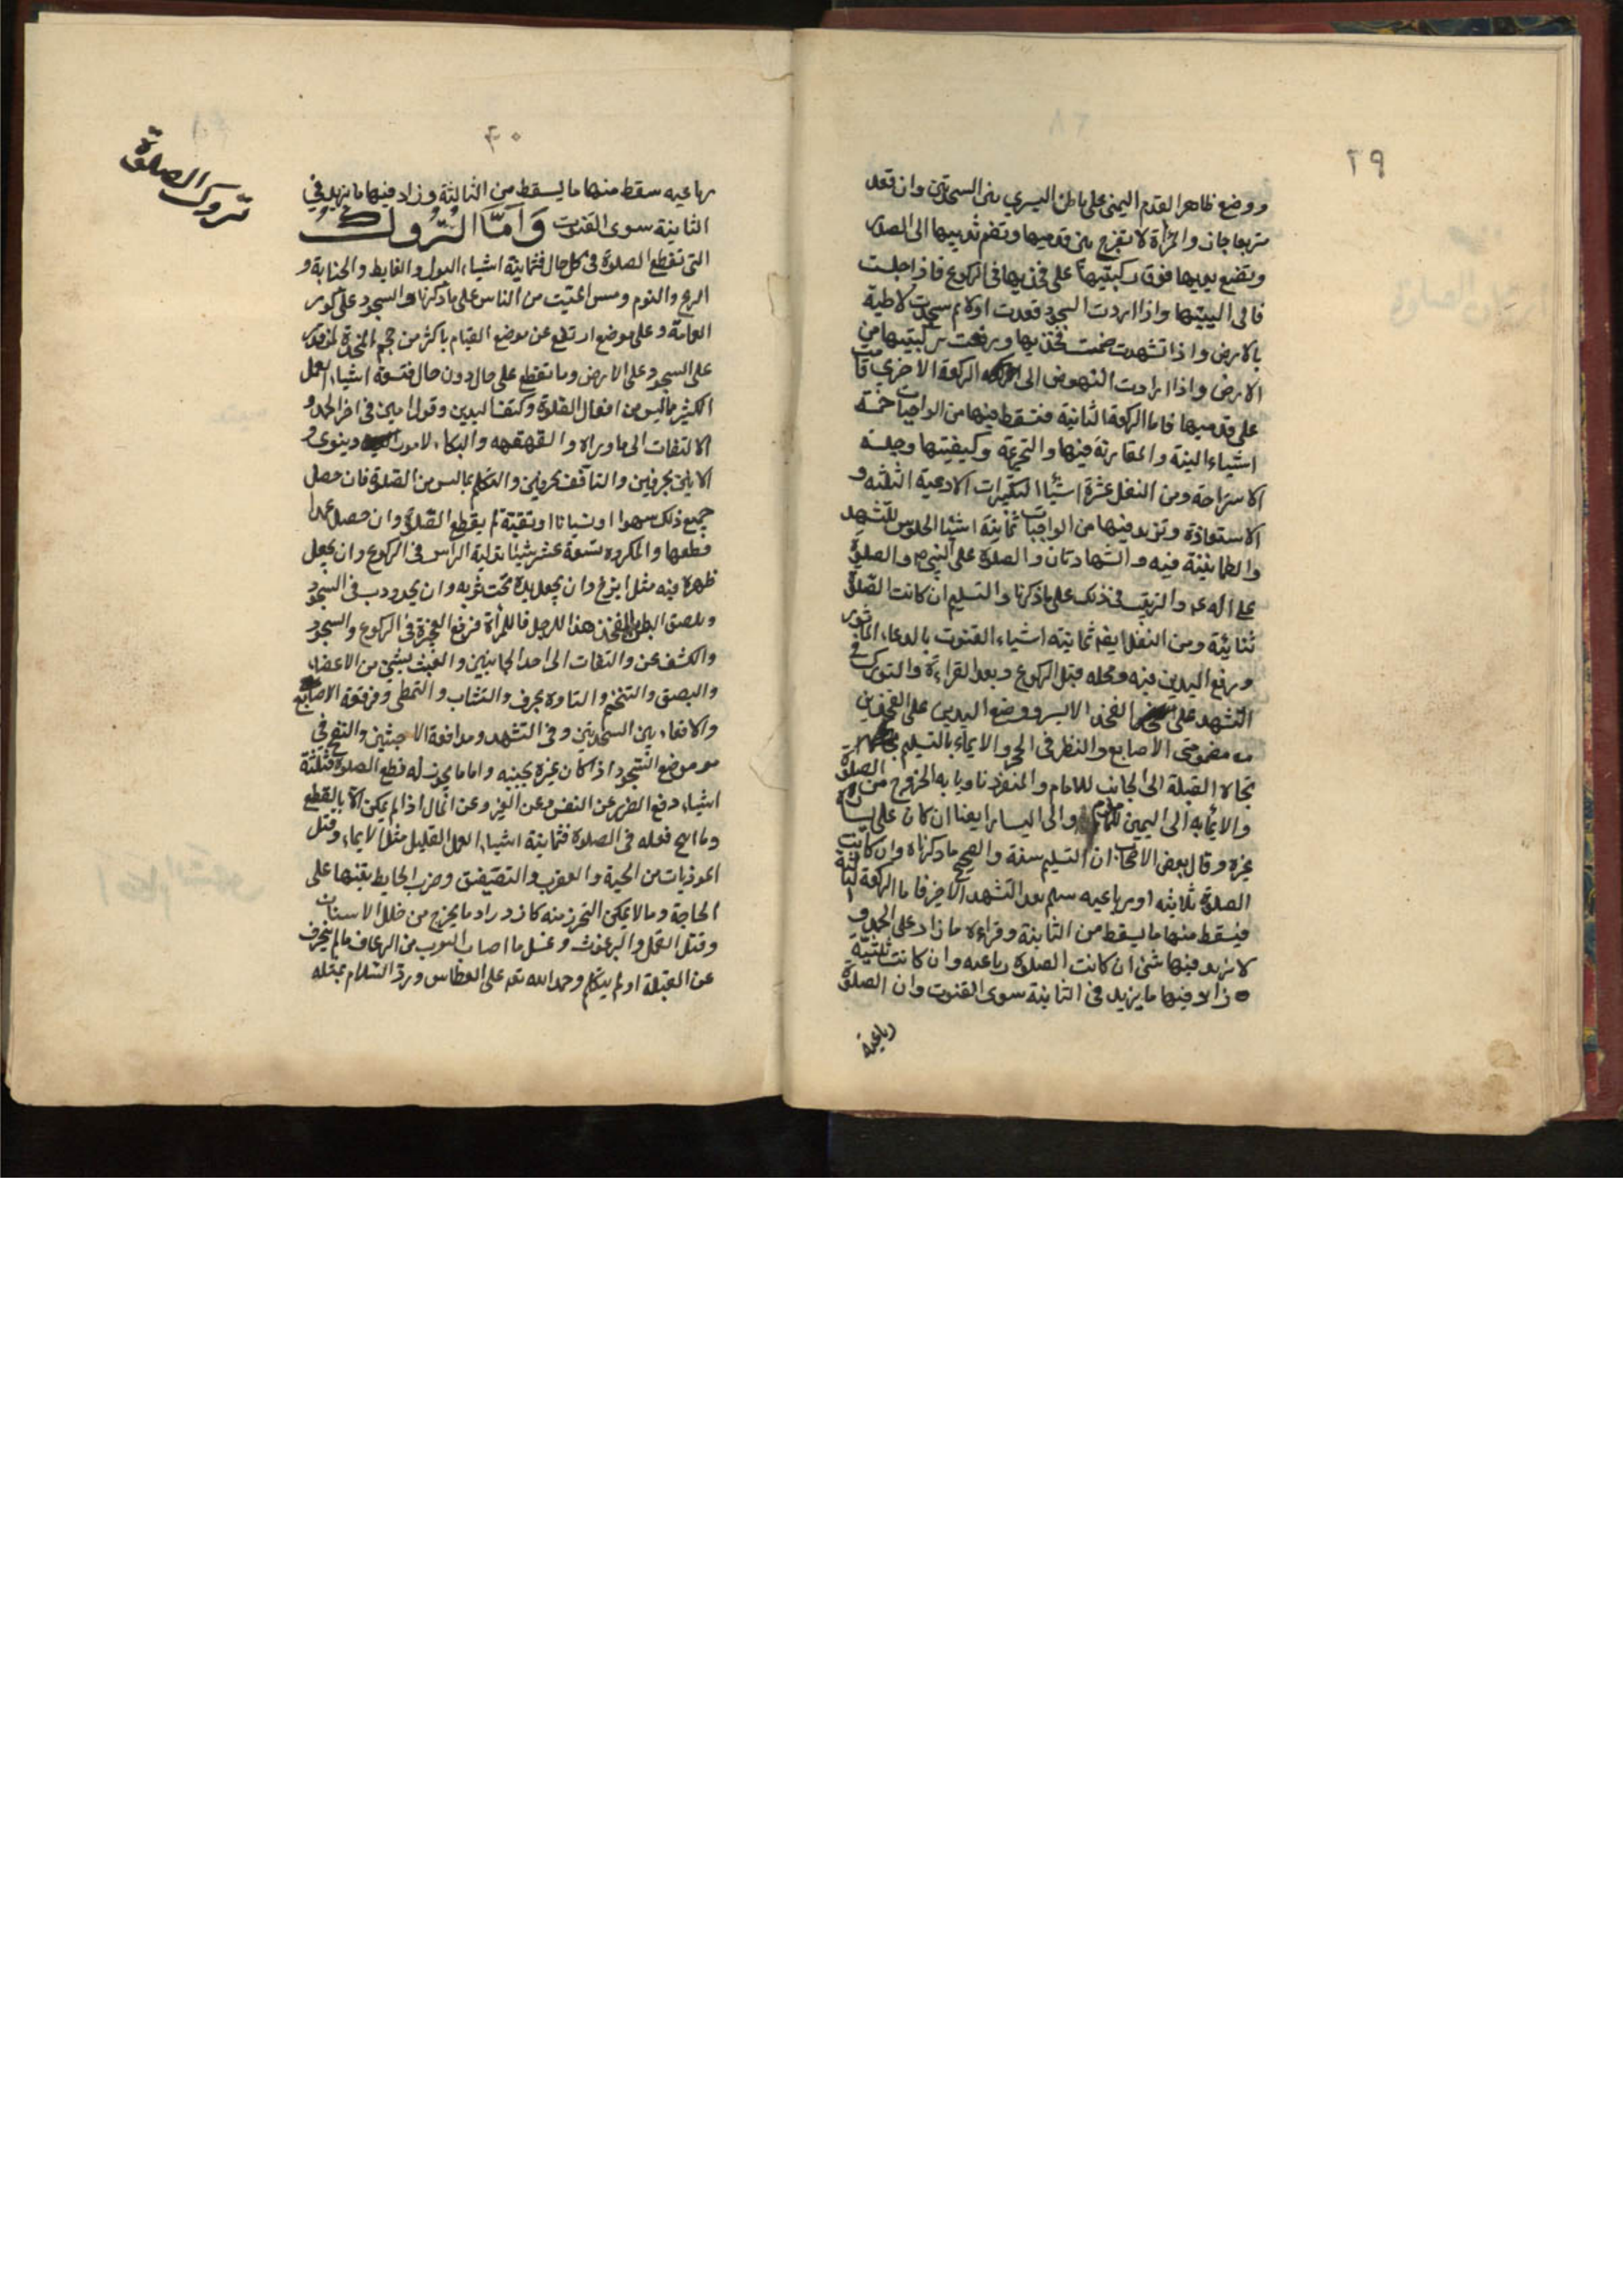 ٢٩
ووضع ظاهر القدم اليمنى على باطن اليسرى بين السجدتين وان قعد
متربعا جاز والمرأة لا تفرج بين قدميها وتضم ثدييها الى الصدر
وتضع يديها فوق ركبتيها على فخذيها فى الركوع فاذا جلست
فالى اليتيها واذا ارادت السجود قعدت اولا ثم سجدت لاطية
بالارض واذا تشهدت ضمت فخذيها ورفعت ركبتيها من
الارض واذا ارادت النهوض الى الركعة الاخرى قامت
على قدميها فاما الركعة الثانية فتسقط فيها من الواجبات خمسة
اشياء النية والمقارنة فيها والتحريمة وكيفيتها وجلسة
الاستراحة ومن النفل عشرة اشياء التكبيرات الادعية الثلثة و
الاستعاذة وتزيد فيها من الواجبات ثمانية اشيا الجلوس للتشهد
والطمانينة فيه والشهادتان والصلوة على النبى ص والصلوة
على اله ع والترتيب فى ذلك على ما ذكرنا والتسليم ان كانت الصلوة
ثنائية ومن النفل ايضا ثمانية اشياء القنوت بالدعاء الماثور
ورفع اليدين فيه ومحله قبل الركوع وبعد القراءة والتورك فى
التشهد على الفخذ الايسر ووضع اليدين على الفخذين
مضمومتى الاصابع والنظر فى الحجر والايماء بالتسليم
تجاه القبلة الى الجانب للامام والمنفرد ناويا به الخروج من الصلوة
والايماء به الى اليمين للماموم والى اليسار ايضا ان كان على يساره
غيره وقال بعض الاصحاب ان التسليم سنة والصحيح ما ذكرناه وان كانت
الصلوة ثلاثية او رباعيه سلم بعد التشهد الاخير فاما الركعة الثالثة
فيسقط منها ما يسقط من الثانية وقراءة ما زاد على الحمد و
لا يزيد فيها شئ ان كانت الصلوة رباعيه وان كانت ثلثية
زاد فيها ما يزيد فى الثانية سوى القنوت وان الصلوة
رباعية
٣٠
تروك الصلوة
رباعيه سقط منها ما يسقط من الثالثة وزاد فيها ما يزيد فى
الثانية سوى القنوت وَاَمَّا التُّرُوكُ
التى تقطع الصلوة فى كل حال فثمانية اشياء البول والغايط والجنابة و
الريح والنوم ومس الميت من الناس على ما ذكرنا والسجود على كور
العمامة وعلى موضع ارتفع عن موضع القيام باكثر من حجم المخدة لمن قدر
على السجود على الارض وما تقطع على حال دون حال فتسعة اشياء العمل
الكثير ما ليس من افعال الصلوة وكتف اليدين وقول امين فى اخر الحمد و
الالتفات الى ما وراه والقهقهه والبكاء لامور دينوى و
الانين بحرفين والتافف بحرفين والتكلم بما ليس من الصلوة فان حصل
جميع ذلك سهوا او نسيانا او تقية لم يقطع الصلوة وان حصل عمدا
قطعها والمكروه تسعة عشر شيئا تدلية الراس فى الركوع وان يجعل
ظهره فيه مثل ابزخ وان يجعل يده تحت ثوبه وان يحدودب فى السجود
ويلصق البطن بالفخذ هذا للرجل فاما للمرأة فرفع العجزة فى الركوع والسجود
والكشف عن والتفات الى احد الجانبين والعبث بشئ من الاعضاء
والبصق والتنخم والتاوه بحرف والتثاب والتمطى وفرقعة الاصابع
والاقعاء بين السجدتين وفى التشهد ومدافعة الاخبثين والنفخ فى
موضع السجود اذا كان غيره بجنبه واما ما يجوز له قطع الصلوة فثلثة
اشياء دفع الضرر عن النفس وعن الغير وعن المال اذا لم يمكن الا بالقطع
وما ابيح فعله فى الصلوة فثمانية اشياء العمل القليل مثل الايماء وقتل
الموذيات من الحية والعقرب والتصفيق وضرب الحايط تنبيها على
الحاجة وما لا يمكن التحرز منه كازدراد ما يخرج من خلل الاسنان
وقتل القمل والبرغوث وغسل ما اصاب الثوب من الرعاف مالم ينحرف
عن القبلة او لم يتكلم وحمد الله تعه على العطاس ورد السلام بمثله